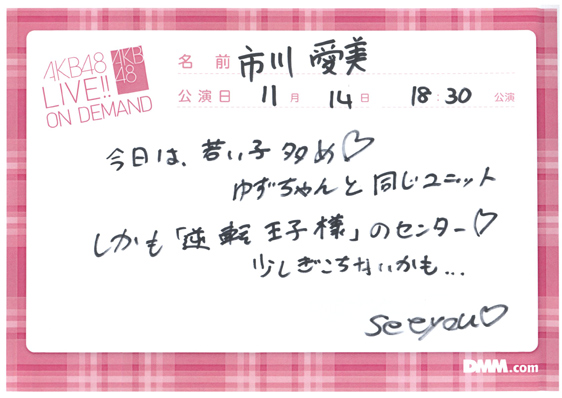 AKB48
LIVE!!
ON DEMAND
AKB
48
名前 市川 愛美
公演日 11月 14日 18:30 公演
今日は、若い子多め♡
ゆずちゃんと同じユニット
しかも「逆転王子様」のセンター♡
少しぎこちないかも...
see you♡
DMM.com